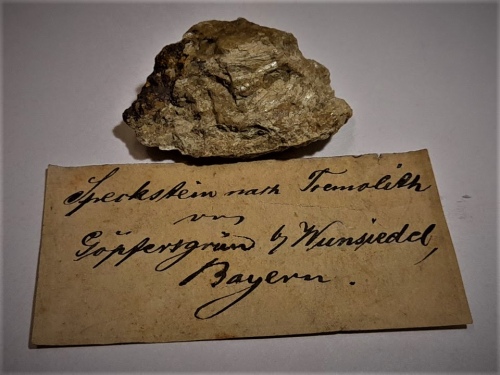 Speckstein nach Tremolith
von
Göpfersgrün b/ Wunsiedel,
Bayern.